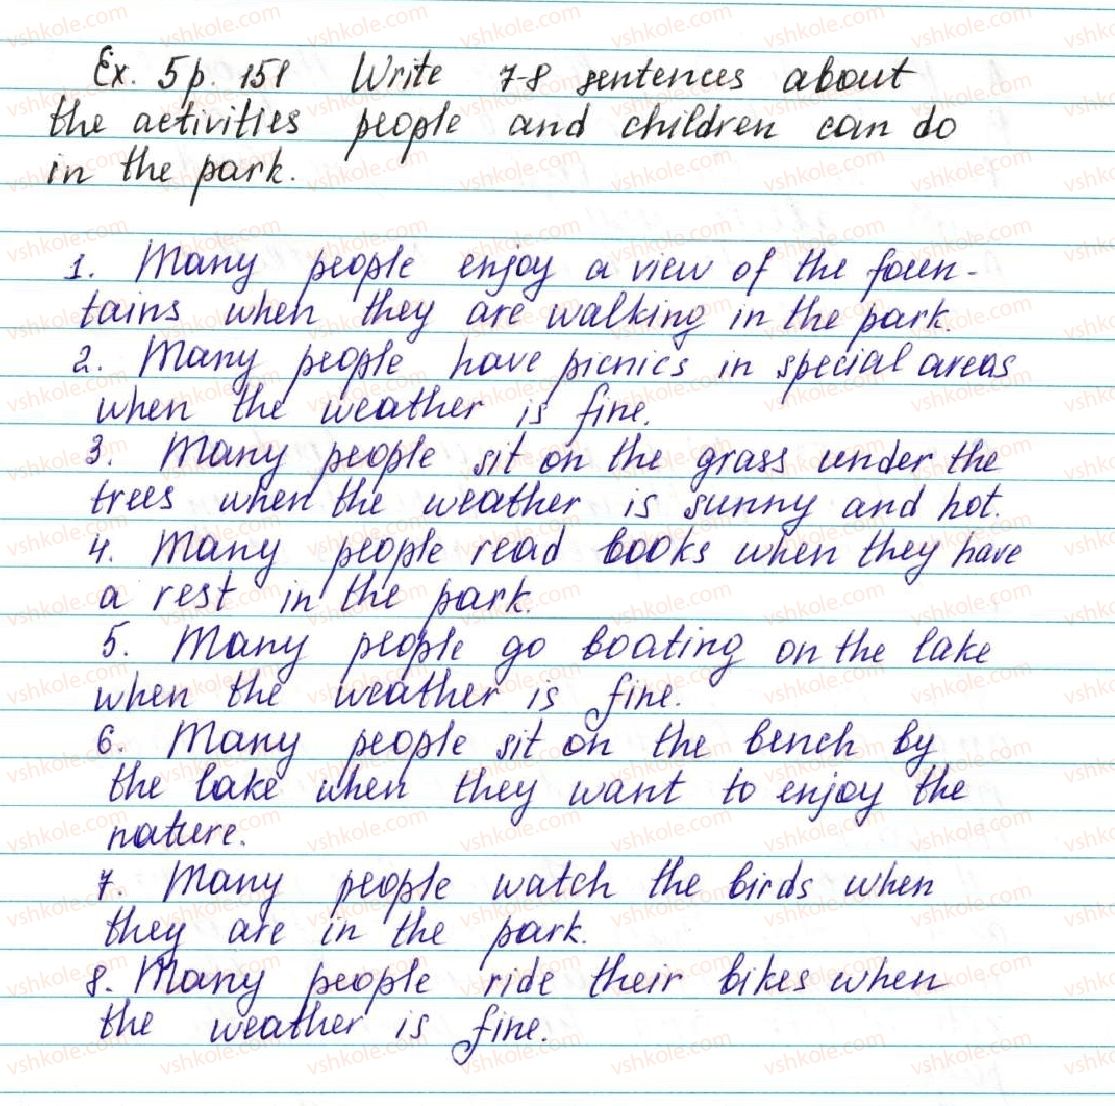 Ex. 5 p. 151 Write 7-8 sentences about
the activities people and children can do
in the park.
1. Many people enjoy a view of the foun-
tains when they are walking in the park.
2. Many people have picnics in special areas
when the weather is fine.
3. Many people sit on the grass under the
trees when the weather is sunny and hot.
4. Many people read books when they have
a rest in the park.
5. Many people go boating on the lake
when the weather is fine.
6. Many people sit on the bench by
the lake when they want to enjoy the
nature.
7. Many people watch the birds when
they are in the park.
8. Many people ride their bikes when
the weather is fine.
vshkole.com